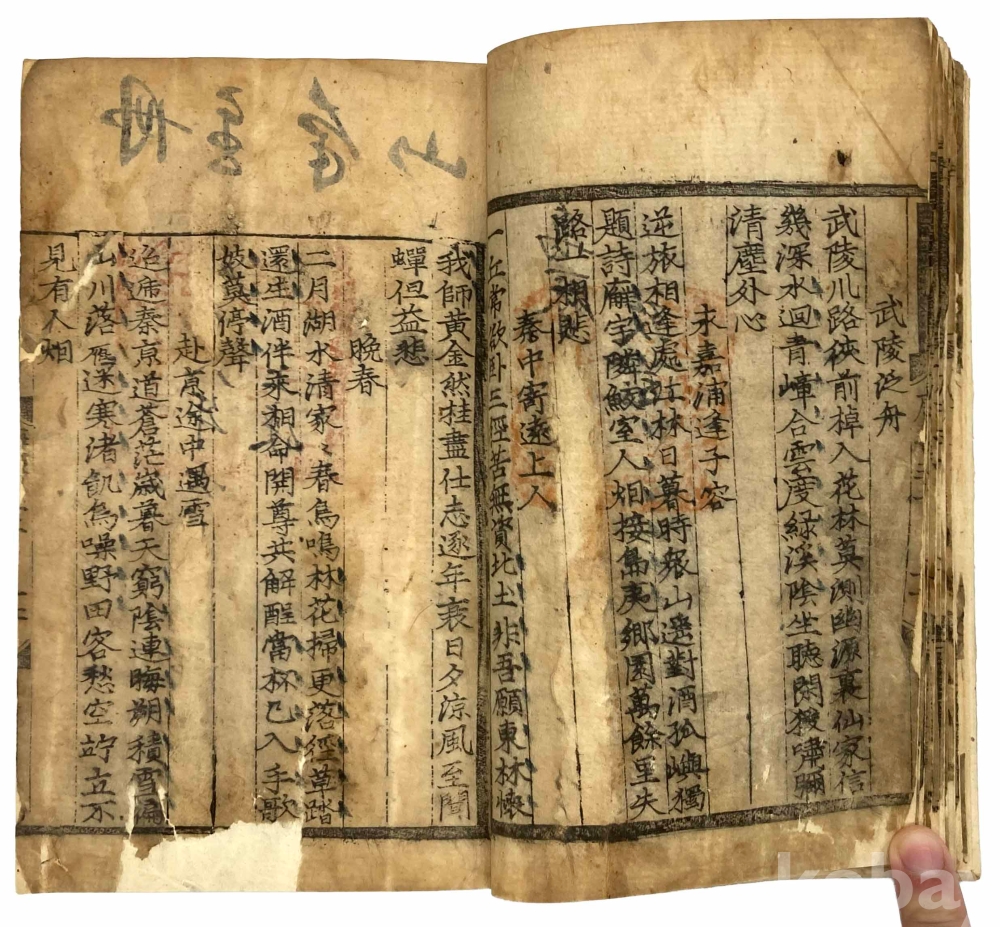 武陵泛舟
武陵川路狹前棹入花林莫測幽源裏仙家信
幾深水迴青嶂合雲度緑溪陰坐聽閑猿嘯彌
清塵外心
永嘉浦逢子容
逆旅相逢處江林日暮時衆山遥對酒孤嶼獨
題詩廨宇隣鮫室人烟接島夷鄉園萬餘里失
路一相悲
秦中寄遠上人
一丘常欲卧三徑苦無資北土非吾願東林懷
我師黃金然桂盡仕志逐年衰日夕涼風至聞
蟬但益悲
晚春
二月湖水清家々春鳥鳴林花掃更落徑草踏
還生酒伴来相命開尊共解酲當杯已入手歌
妓莫停聲
赴京途中遇雪
迢遞秦京道蒼茫歲暮天窮陰連晦朔積雪遍
山川落鴈迷寒渚飢烏噪野田客愁空竚立不
見有人烟